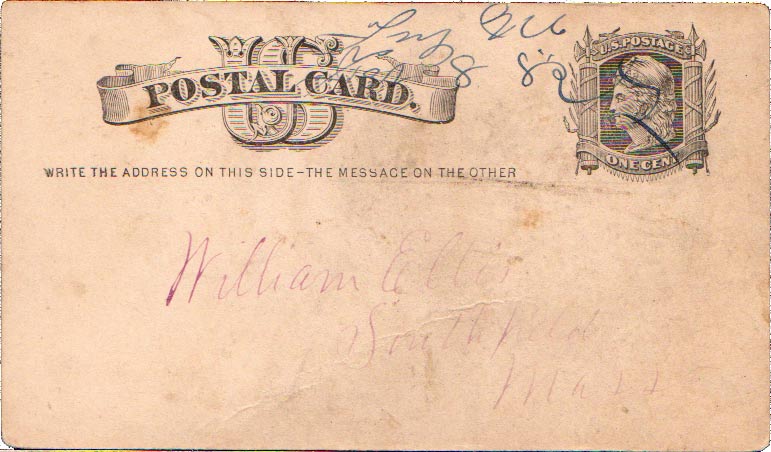 US
POSTAL CARD.
U.S. POSTAGE
ONE CENT
WRITE THE ADDRESS ON THIS SIDE-THE MESSAGE ON THE OTHER
William Ellis
Southfield
Mass